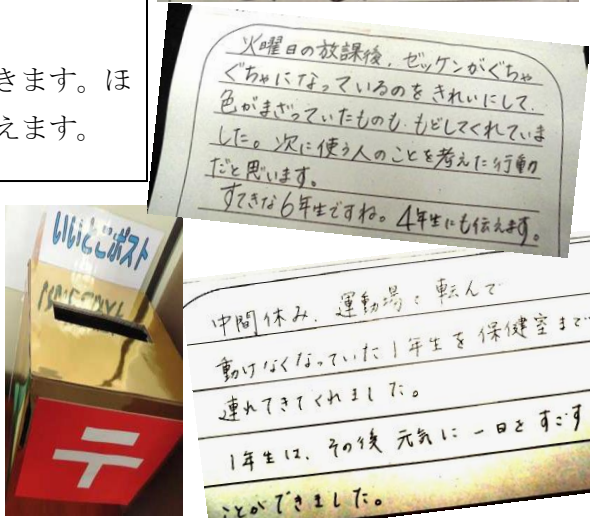 きます。ほ
えます。
火曜日の放課後、ゼッケンがぐちゃ
ぐちゃになっているのをきれいにして、
色がまざっていたものも、もどしてくれていま
した。次に使う人のことを考えた行動
だと思います。
すてきな6年生ですね。4年生にも伝えます。
いいとこポスト
中間休み、運動場で転んで
動けなくなっていた1年生を保健室まで
連れてきてくれました。
1年生は、その後元気に一日をすごす
ことができました。